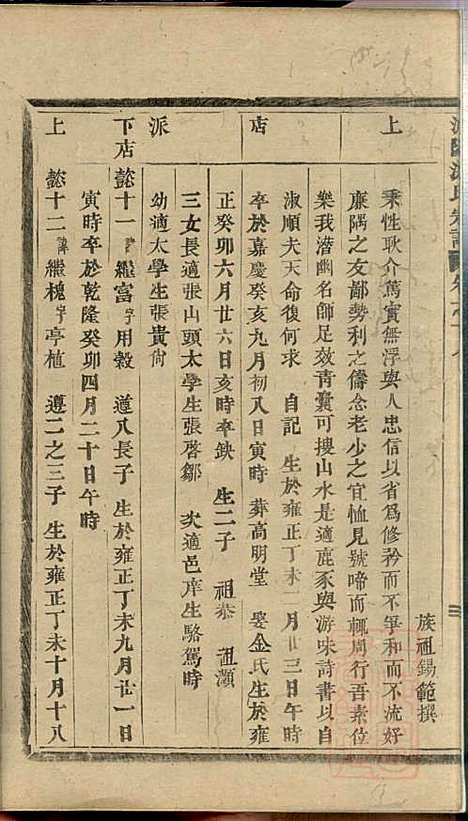 族祖錫範撰
秉性耿介篤實無浮與人忠信以省爲修矜而不爭和而不流好
廉隅之友鄙勢利之儔念老少之宜恤見號啼而輒周行吾素位
樂我潛幽名師足效靑囊可搜山水是適鹿豕與游味詩書以自
淑順夫天命復何求 自記 生於雍正丁未一月廿三日午時
卒於嘉慶癸亥九月初八日寅時 葬高明堂 娶金氏生於雍
正癸卯六月廿六日亥時卒缺 生二子 祖恭 祖灝
三女長適張山頭太學生張啓鄒 次適邑庠生駱駕時
幼適太學生張貴尙
懿十一諱繼富字用穀 遵八長子 生於雍正丁未九月廿一日
寅時卒於乾隆癸卯四月二十日午時
懿十二諱繼槐字亭植 遵二之三子 生於雍正丁未十月十八
上
店
派
下店
上